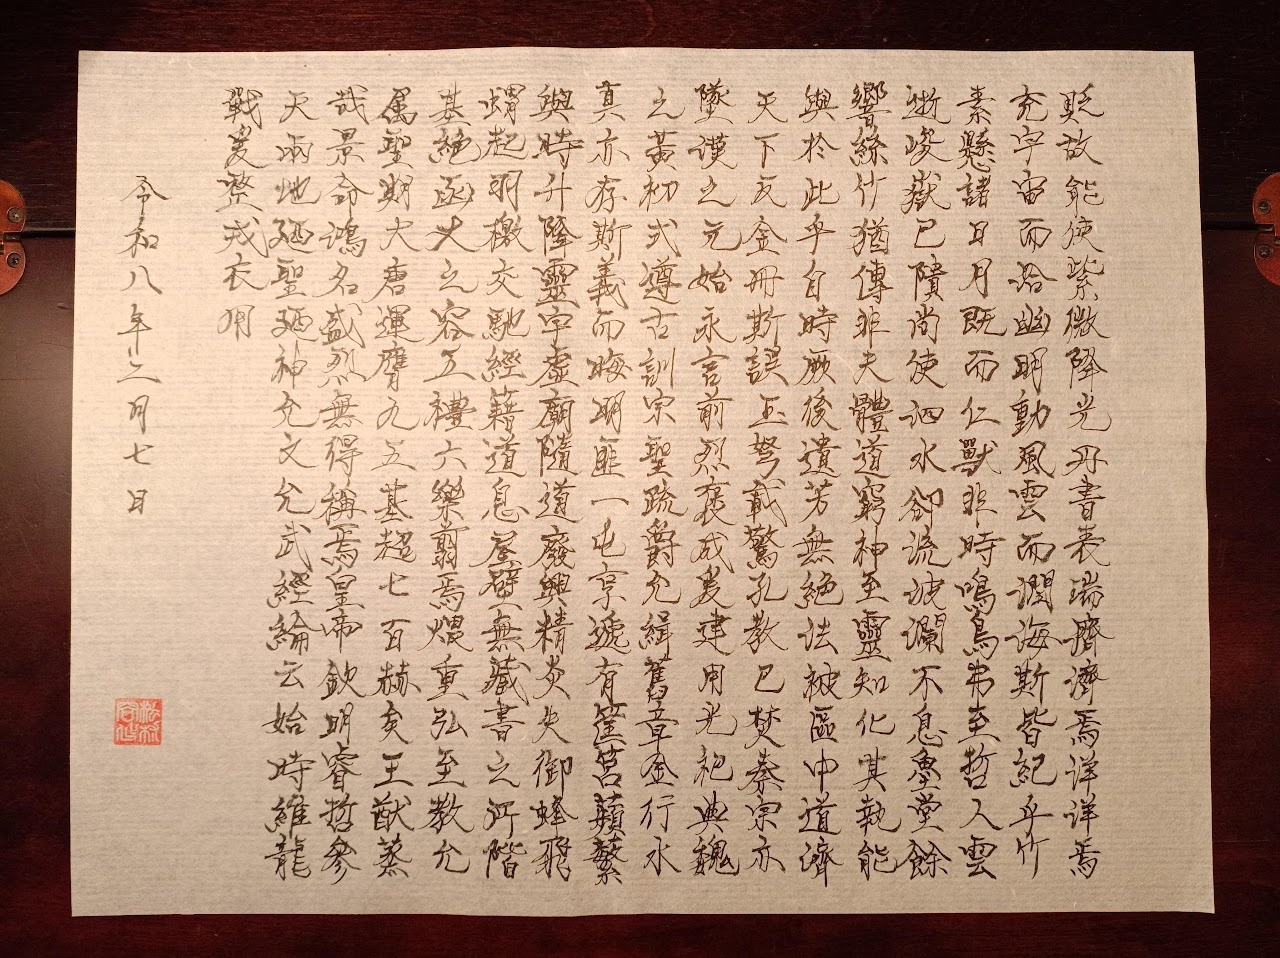 貶故能使紫微降光丹書表瑞濟濟焉洋洋焉
充宇宙而洽幽明動風雲而潤海斯皆紀乎竹
素懸諸日月既而仁獸非時鳴鳥弗至哲人雲
逝峻嶽已隤尚使泗水卻流波瀾不息魯堂餘
響絲竹猶傳非夫體道窮神至靈知化其孰能
與於此乎自時厥後遺芳無絕法被區中道濟
天下及金冊斯誤玉弩載驚孔教已焚秦宗亦
墜漢之元始永言前烈褒成爰建用光祀典魏
之黃初式遵古訓宗聖疏爵允緝舊章金行水
真亦存斯義而晦明匪一屯亨遞有筐筥蘋蘩
與時升降靈宇虛廟隨道廢興精炎失御蜂飛
蝟起羽檄交馳經籍道息屋壁無藏書之所階
基絕函丈之容五禮六樂翦焉煨重弘至教允
属聖期大唐運膺九五基超七百赫矣王猷蒸
哉景命鴻名盛烈無得稱焉皇帝欽明睿哲參
天兩地迺聖迺神允文允武經綸云始時維龍
戰爰整戎衣用
令和八年三月七日